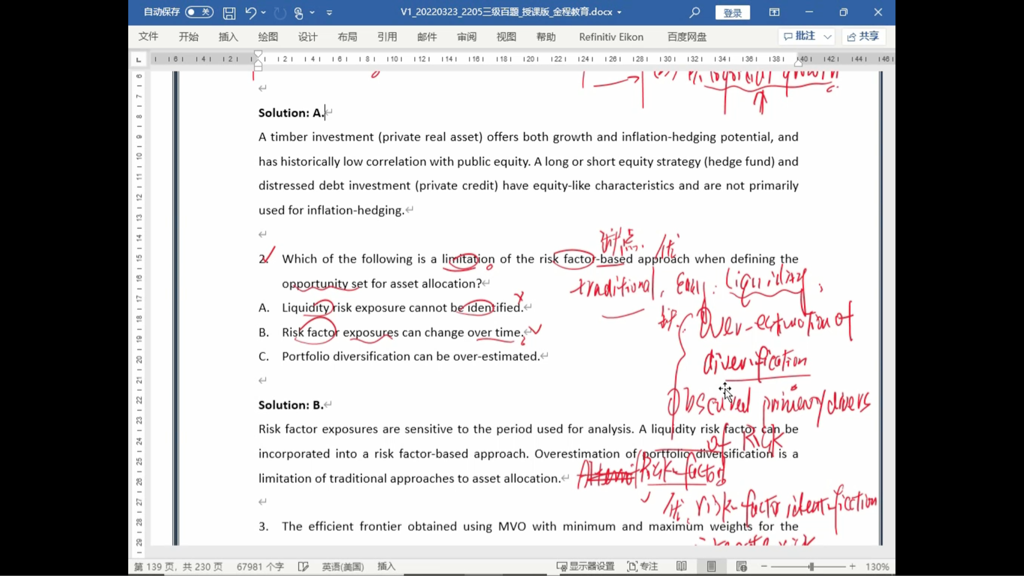 自动保存 关 V1_20220323_2205三级百题_授课版_金程教育.docx 登录
文件 开始 插入 绘图 设计 布局 引用 邮件 审阅 视图 帮助 Refinitiv Eikon 百度网盘 批注 共享
Solution: A.
A timber investment (private real asset) offers both growth and inflation-hedging potential, and
has historically low correlation with public equity. A long or short equity strategy (hedge fund) and
distressed debt investment (private credit) have equity-like characteristics and are not primarily
used for inflation-hedging.
2. Which of the following is a limitation of the risk factor-based approach when defining the
opportunity set for asset allocation?
traditional, easy. liquidity,
A. Liquidity risk exposure cannot be identified.
B. Risk factor exposures can change over time.
Over-estimation of
C. Portfolio diversification can be over-estimated.
diversification
Obscured primary drivers
of Risk
Solution: B.
Risk factor exposures are sensitive to the period used for analysis. A liquidity risk factor can be
incorporated into a risk factor-based approach. Overestimation of portfolio diversification is a
limitation of traditional approaches to asset allocation.
Risk-factor
risk-factor identification
3. The efficient frontier obtained using MVO with minimum and maximum weights for the
第 139 页，共 230 页 67981 个字 英语(美国) 插入 显示器设置 专注 130%